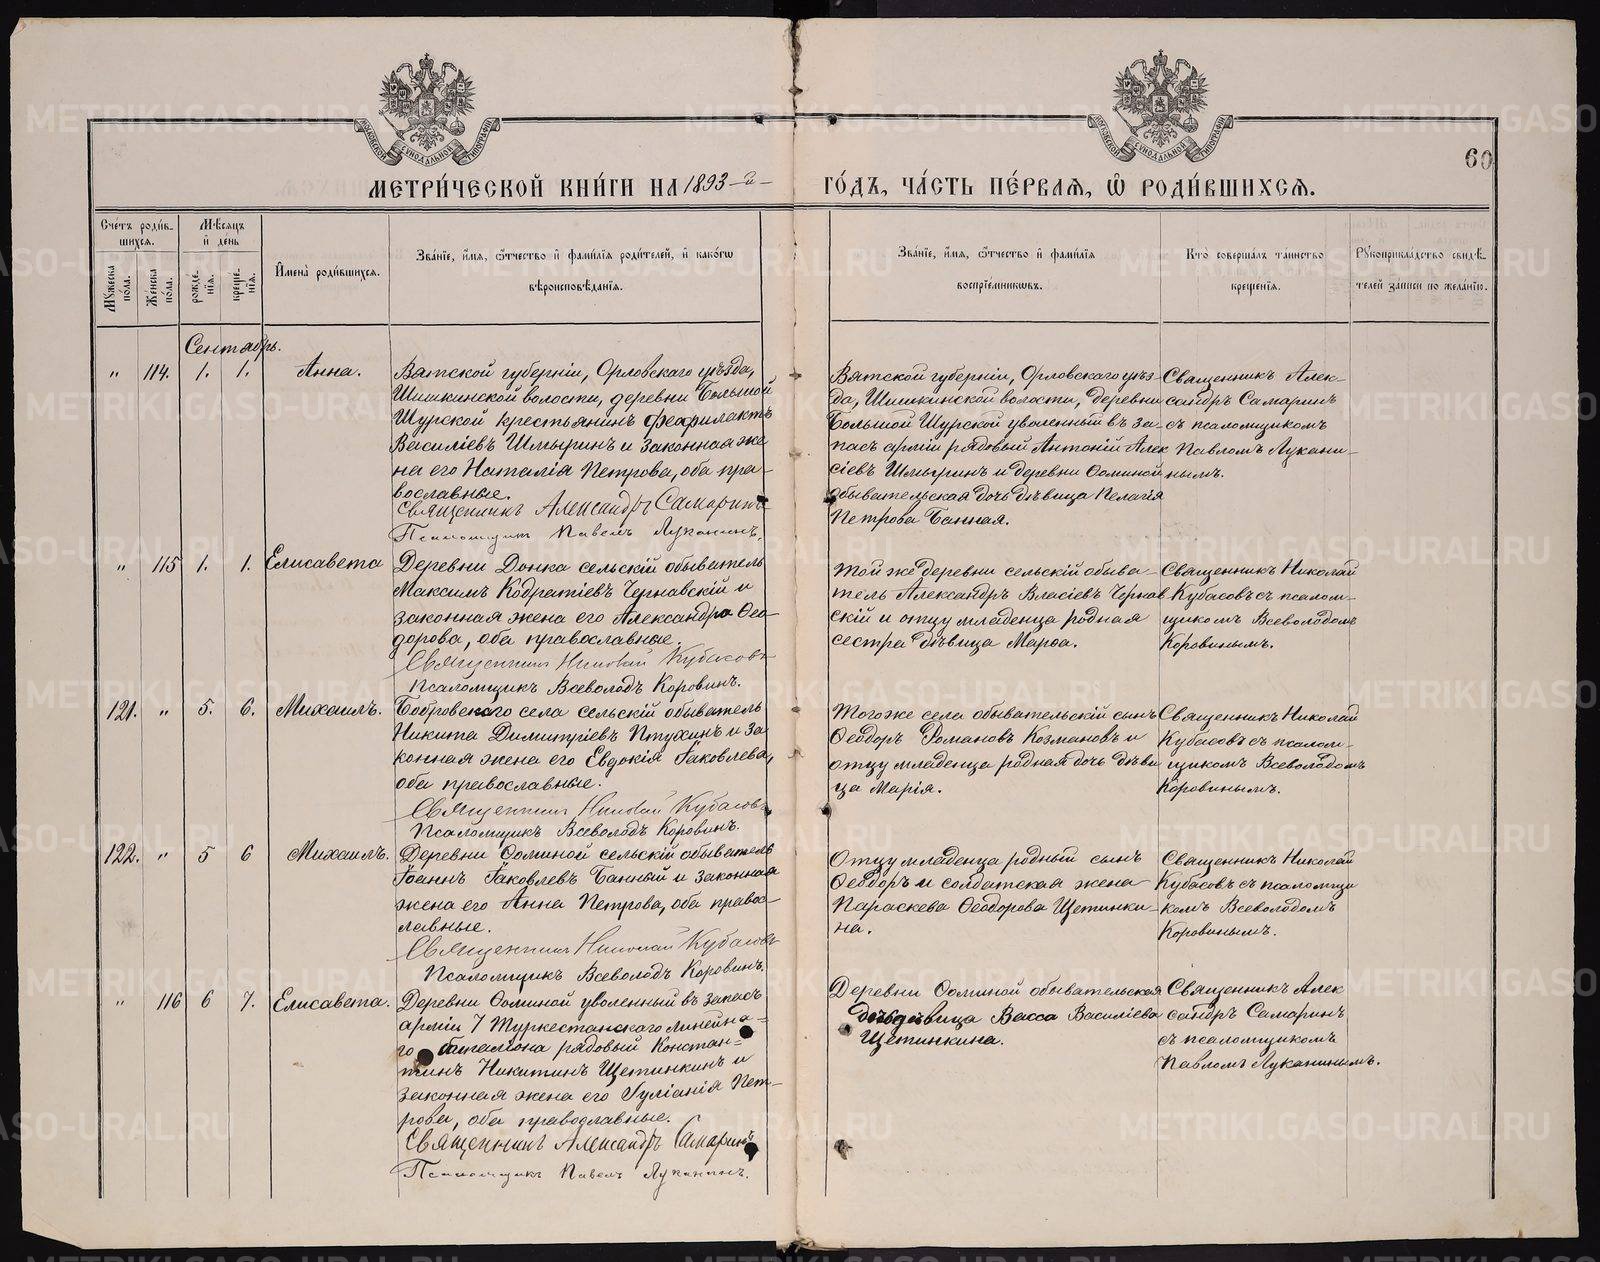 МОСКОВСКОЙ СУНОДАЛЬНОЙ ТИПОГРАФІИ
МОСКОВСКОЙ СУНОДАЛЬНОЙ ТИПОГРАФІИ
60
МЕТРИ́ЧЕСКОЙ КНИ́ГИ НА 1893-й
ГО́ДЪ, ЧА́СТЬ ПЕ́РВАЯ, Ѡ҆ РОДИ́ВШИХСЯ.
Сче́тъ роди́в-
шихся.
Мѣ́сяцъ
и҆ де́нь
Му́жеска
по́ла.
Же́нска
по́ла.
рожде́-
нїя.
креще́-
нїя.
И҆мена̀ роди́вшихся.
Зва́нїе, и҆́мя, ѻ҆́тчество и҆ фами́лїя роди́телей, и҆ како́гѡ
вѣроисповѣ́данїя.
Зва́нїе, и҆́мя, ѻ҆́тчество и҆ фами́лїя
воспрїе́мниковъ.
Кто̀ соверша́лъ та́инство
креще́нїя.
Рꙋкоприкла́дство свидѣ́-
телей за́писи по жела́нїю.
Сентябрь.
" 114. 1. 1. Анна.
Вятской губерніи, Орловскаго уѣзда,
Шишкинской волости, деревни Большой
Шурской крестьянинъ Феофилактъ
Василіевъ Шмыринъ и законная же-
на его Наталія Петрова, оба пра-
вославные.
Священникъ Александръ Самаринъ
Псаломщикъ Павелъ Луканинъ.
Вятской губерніи, Орловскаго уѣз-
да, Шишкинской волости, деревни
Большой Шурской уволенный въ за-
пасъ арміи рядовый Антоній Алек
сіевъ Шмыринъ и деревни Ѳоминой
обывательская дочь дѣвица Пелагія
Петрова Банная.
Священникъ Алек-
сандръ Самаринъ
съ псаломщикомъ
Павломъ Лукани-
нымъ.
" 115 1. 1. Елисавета
Деревни Донка сельскій обыватель
Максимъ Кодратіевъ Чернавскій и
законная жена его Александра Ѳео-
дорова, оба православные.
Священникъ Николай Кубасовъ
Псаломщикъ Всеволодъ Коровинъ.
Той же деревни сельскій обыва-
тель Александръ Власіевъ Чернов
скій и отцу младенца родная
сестра дѣвица Марѳа.
Священникъ Николай
Кубасовъ съ псалом-
щикомъ Всеволодомъ
Коровинымъ.
121. " 5. 6. Михаилъ.
Бобровскаго села сельскій обыватель
Никита Димитріевъ Птухинъ и за
конная жена его Евдокія Іаковлева,
оба православные.
Священникъ Николай Кубасовъ
Псаломщикъ Всеволодъ Коровинъ.
Того же села обывательскій сынъ
Ѳеодоръ Романовъ Козмановъ и
отцу младенца родная дочь дѣви
ца Марія.
Священникъ Николай
Кубасовъ съ псалом-
щикомъ Всеволодомъ
Коровинымъ.
122. " 5 6 Михаилъ.
Деревни Ѳоминой сельскій обыватель
Іоаннъ Іаковлевъ Банный и законная
жена его Анна Петрова, оба правос-
лавные.
Священникъ Николай Кубасовъ
Псаломщикъ Всеволодъ Коровинъ.
Отцу младенца родный сынъ
Ѳеодоръ и солдатская жена
Параскева Ѳеодорова Щетинки-
на.
Священникъ Николай
Кубасовъ съ псаломщи
комъ Всеволодомъ
Коровинымъ.
" 116 6 7. Елисавета.
Деревни Ѳоминой уволенный въ запасъ
арміи 7 Туркестанскаго линейна-
го баталіона рядовый Констан-
тинъ Никитинъ Щетинкинъ и
законная жена его Іуліанія Пет-
рова, оба православные.
Священникъ Александръ Самаринъ
Псаломщикъ Павелъ Луканинъ.
Деревни Ѳоминой обывательская
дѣвица Васса Василіева
Щетинкина.
Священникъ Алек
сандръ Самаринъ
съ псаломщикомъ
Павломъ Луканинымъ.
METRIKI.GASO-URAL.RU